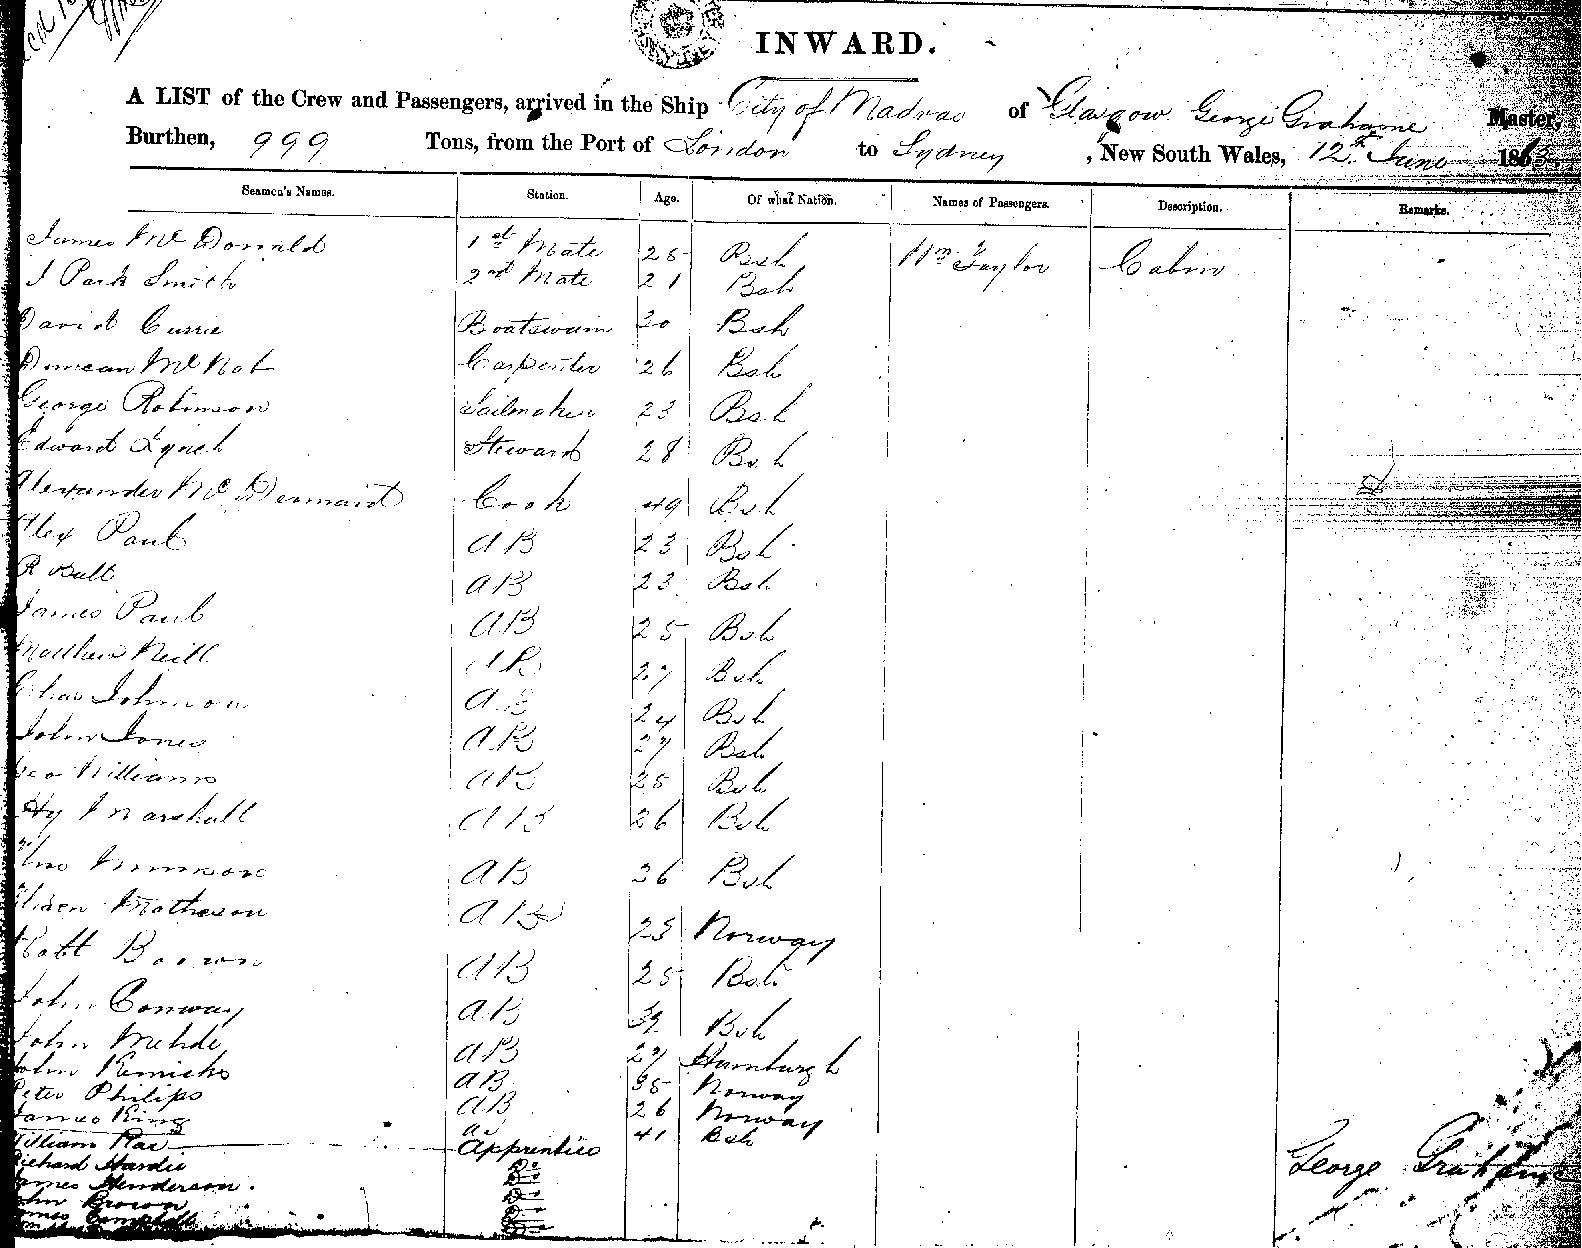 INWARD.
A LIST of the Crew and Passengers, arrived in the Ship City of Madras of Glasgow George Grahame Master,
Burthen, 999 Tons, from the Port of London to Sydney, New South Wales, 12th June 1863
Seamen's Names. Station. Age. Of what Nation. Names of Passengers. Description. Remarks.
James Mc Donald 1st Mate 25 Bsh Mr Taylor Cabin
J Park Smith 2nd Mate 21 Bsh
David Currie Boatswain 30 Bsh
Duncan Mc Nab Carpenter 26 Bsh
George Robinson Sailmaker 23 Bsh
Edward Lynch Steward 28 Bsh
Alexander Mc Dermaid Cook 49 Bsh
Alex Paul AB 23 Bsh
R Bull AB 23 Bsh
James Paul AB 25 Bsh
Matthew Neill AB 27 Bsh
Chas Johnson AB 24 Bsh
John Jones AB 27 Bsh
Geo Williams AB 25 Bsh
Hy Marshall AB 26 Bsh
AB 36 Bsh
Matheson AB 23 Norway
Robt Brown AB 25 Bsh
John Conway AB 39 Bsh
John Mehde AB 27 Hamburgh
John AB 35 Norway
Peter Philips AB 26 Norway
James King AB 41 Bsh
William Rae Apprentice
Richard Hardie Do
James Henderson. Do
John Brown Do
James Campbell Do
George Grahame